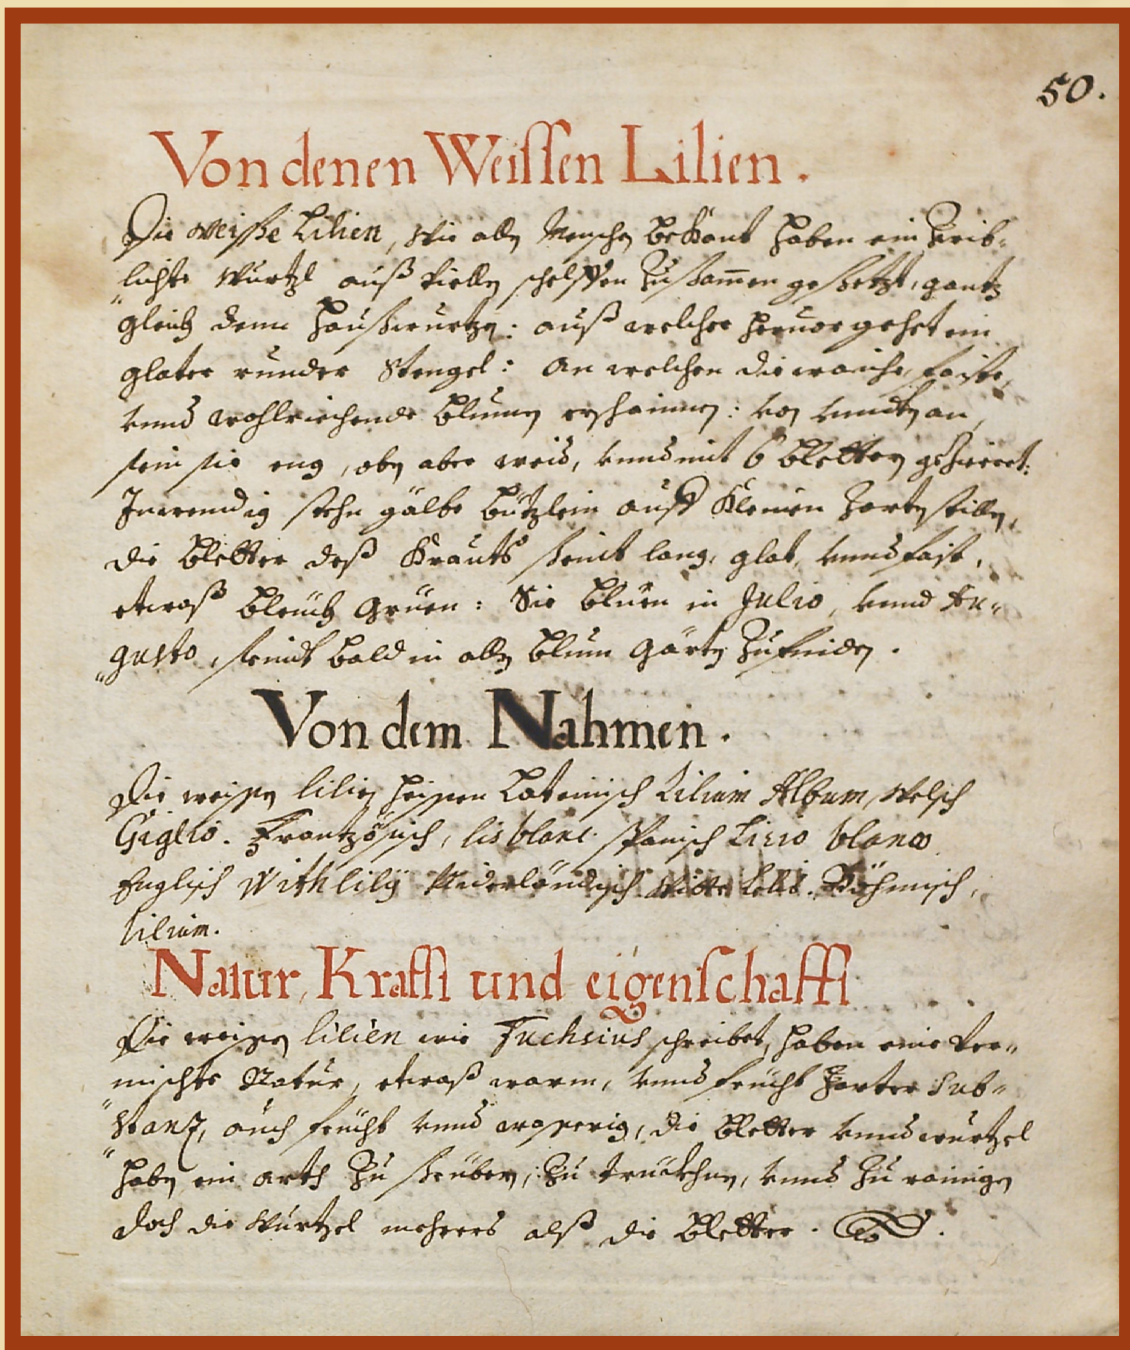 50.
Von denen Weissen Lilien.
Die weiße Lilien, wie allen Menschen bekant haben ein Zwib-
lichte Wurtzl auß viellen schelffen Zusammen gesetzt, gantz
gleich denen Haußwurtzen: auß welcher heruor gehet ein
glater runder Stengel: An welchen die waiche, faiste,
vnnd wohlriechende Blumen erschainnen: von vnndten an,
sein sie eng, oben aber weid, vnnd mit 6 bletter geziert:
Inwendig stehn gälbe butzlein auff kleinen zarten stillen,
die bletter deß Krauts seindt lang, glat, vnnd faist,
etwaß bleich gruen: Sie bluen in Julio, vnnd Au-
gusto, seindt bald in allen blum gärten Zu finden.
Von dem Nahmen.
Die weissen lilien heissen Lateinisch Lilium Album, Welsch
Giglio. Frantzösisch, lis blanc. Spanisch Lirio blanco
Englisch With lilÿ Niderländisch Witte Lelis. Böhmisch,
lilium.
Natur, Krafft und eigenschafft
Die weissen lilien wie Fuchsius schreibet, haben eine ver-
mischte Natur, etwaß warm, vnnd feucht zarter Sub-
stanz, auch feucht vnnd wasserig, die bletter vnnd wurtzel
haben ein arth Zu seubern, Zu truckhnen, vnnd Zu rainigen
doch die Wurtzel mehrers alß die bletter.